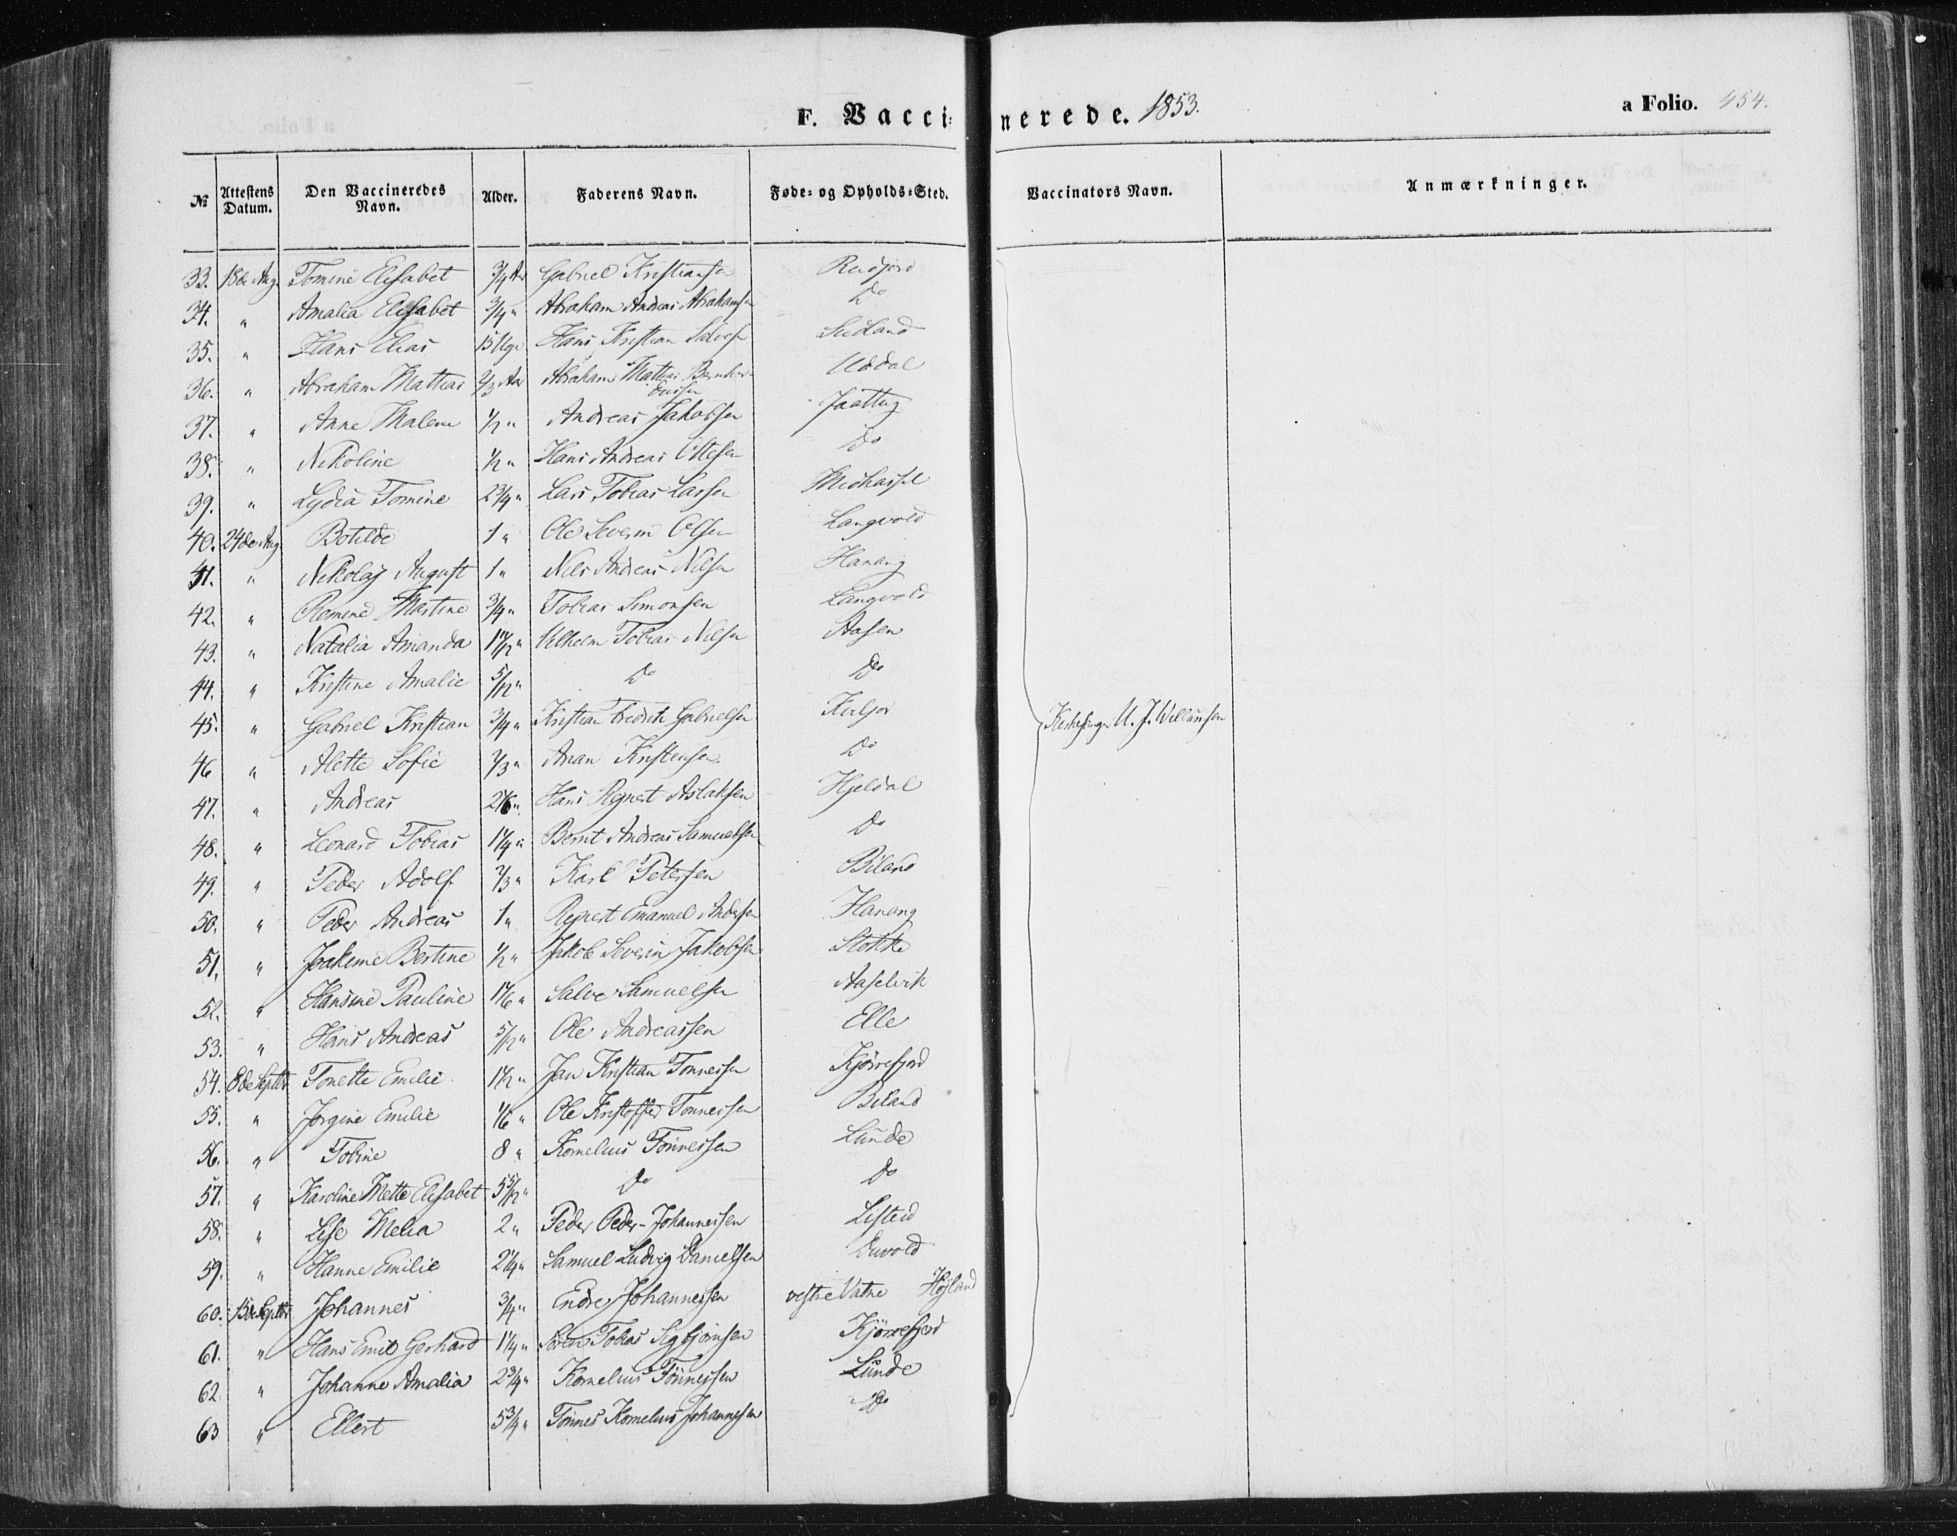 F. Vaccinerede. 1853.
a Folio. 454.
№ Attestens Datum. Den Vaccineredes Navn. Alder. Faderens Navn. Føde- og Opholds-Sted. Vaccinators Navn. Anmærkninger.
33. 18de Aug Tomine Elisabet 3/4 Aar Gabriel Kristiansen
34. " Amalia Elisabet 3/4 " Abraham Andreas Abrahamsen Do
35. " Hans Elias 15 Uger Hans Kristian Salvesen
36. " Abraham Mathias 2/3 Aar Abraham Mathias Uddal
37. " Anne Malene 1/2 " Andreas Jakobsen Jaattug
38. " Nikoline 1/2 " Hans Andreas Do
39. " Lydia Tomine 2 3/4 " Lars Tobias Larsen Midhassel
40. 24de Aug Botilde 1 " Ole Severin Olsen Langvold
41. " Nikolaj August 1 " Nils Andreas Nilsen Hanang
42. " Martine 3/4 " Tobias Simonsen Langvold
43. " Natalia Amanda Vilhelm Tobias Nilsen Aasen
44. " Kristine Amalie 5/12 " Do Do
45. " Gabriel Kristian 3/4 " Kristian Fredrik Gabrielsen Kirkefanger U. J. Williumsen
46 " Alette Sofie 2/3 " Anan Kristensen Do
47. " Andreas 2 1/6 " Hans Regnert Aslaksen Hjeldal
48. " Leonard Tobias 1 1/4 " Bernt Andreas Samuelsen Do
49. " Peder Adolf 2/3 " Karl Petersen Biland
50. " Peder Andreas 1 " Regnert Emanuel Andersen Hanang
51. " Joakime Bertine 1/2 " Jakob Severin Jakobsen Stokke
52. " Hansine Pauline 1 1/6 " Salve Samuelsen
53. " Hans Andreas 5/12 " Ole Andreassen Elle
54. 8de Septbr Tonette Emilie 1 1/2 " Jan Kristian Tønnessen Kjørrefjord
55. " Jørgine Emilie 1/6 " Ole Kristoffer Tønnessen Biland
56. " Tobine 8 " Kornelius Tønnessen Lunde
57. " Karoline Mette Elisabet 5 5/12 " Do Do
58. " Lise Melia 2 " Peder Peder-Johannessen Listeid
59. " Hanne Emilie 2 1/4 " Samuel Ludvig Danielsen
60. 15de Septbr Johannes 3/4 " Endre Johannessen vestre Vatne Høyland
61. " Hans Emil Gerhard 1 1/4 " Tobias Sigbjørnsen Kjørrefjord
62 " Johanne Amalia 2 3/4 " Kornelius Tønnessen Lunde
63 " Ellert 5 3/4 " Tønnes Kornelius Johannessen Do